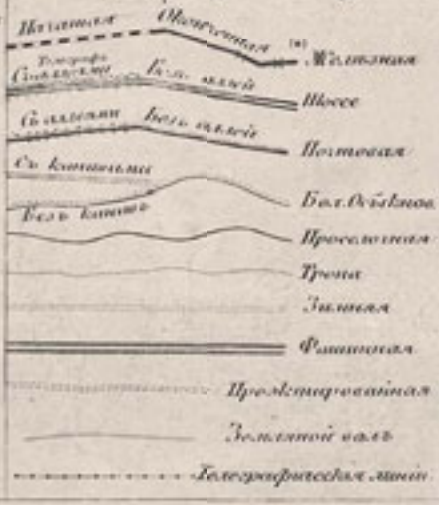 Начатая Оконченная (м) Желѣзная
Телеграфъ
Съ аллеями Безъ аллей Шоссе
Съ аллеями Безъ аллей Почтовая
Съ канавами
Безъ канавъ Бол. Объѣзная
Проселочная
Тропа
Зимняя
Фашинная
Прожктированная
Земляной валъ
Телеграфическія линіи